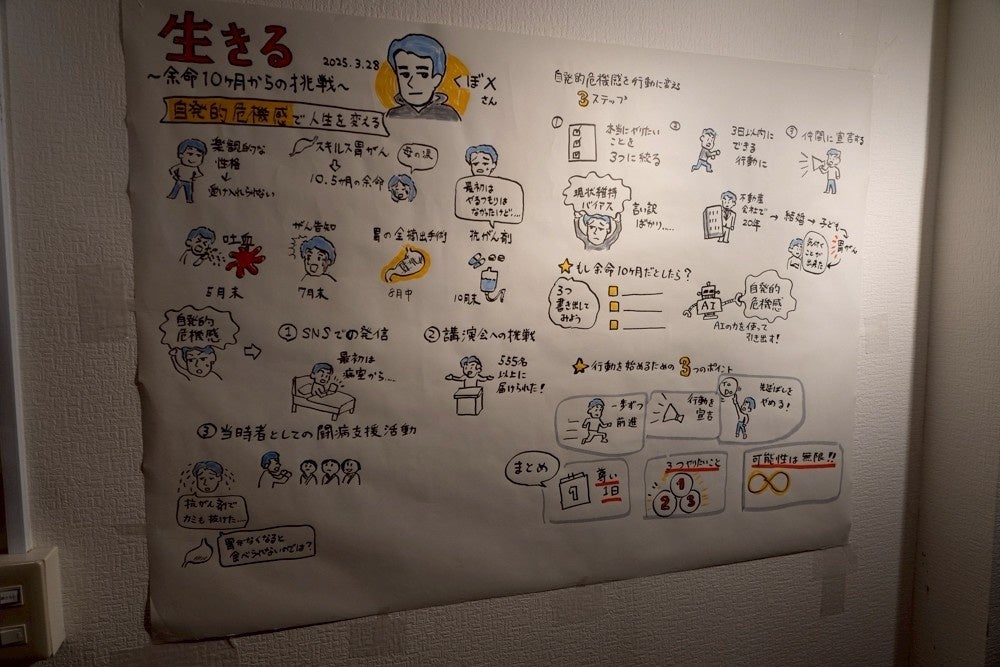 生きる
2025.3.28
～余命10ヶ月からの挑戦～
くぼX
さん
自発的危機感で人生を変える
楽観的な
性格
↓
受け入れられない
スキルス胃がん
⇩
10.5ヶ月の余命
母の涙
最初は
やるつもりは
なかったけど…
吐血
5月末
がん告知
7月末
胃の全摘出手術
8月中
抗がん剤
10月末
自発的
危機感
① SNSでの発信
最初は
病室から…
② 講演会への挑戦
555名
以上に
届けられた!
③ 当時者としての闘病支援活動
抗がん剤で
カミも抜けた…
胃がなくなると
食べられないのでは?
自発的危機感を行動に変える
3ステップ
①
本当にやりたい
ことを
3つに絞る
②
3日以内に
できる
行動に
③ 仲間に宣言する
現状維持
バイアス
言い訳
ばかり….
不動産
会社で
20年
→ 結婚 → 子ども
胃がん
気付く
ことが
出来た
★もし余命10ヶ月だとしたら?
3つ
書き出して
みよう
AI
自発的
危機感
AIの力を使って
引き出す!
★行動を始めるための3つのポイント
一歩ずつ
前進
行動を
宣言
To Do
先延ばしを
やめる!
まとめ
1
尊い
1日
3つやりたいこと
1
2 3
可能性は無限!!
∞